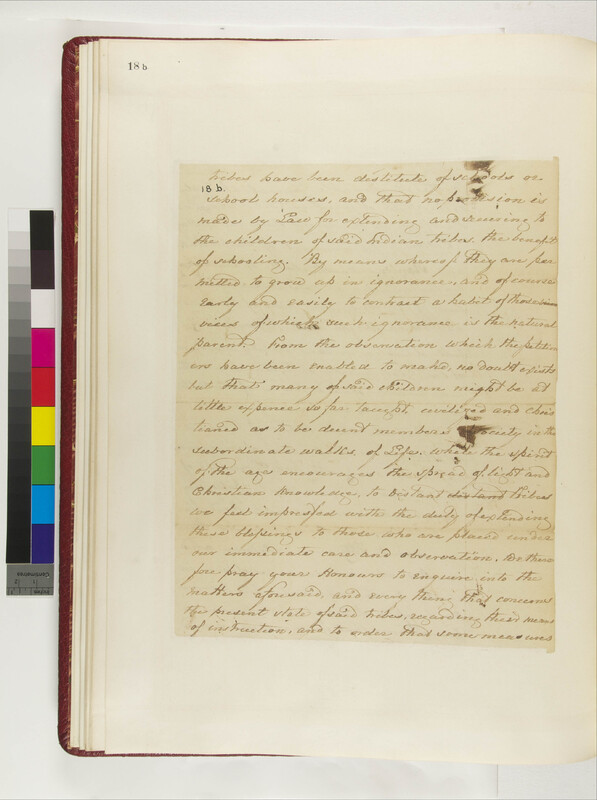 18 b
tribes have been destitute of schools or
18 b.
school houses, and that no provision is
made by Law for extending and securing to
the children of said Indian tribes, the benefit
of schooling. By means whereof they are per
mitted to grow up in ignorance, and of course
Early and easily to contract a habit of those
vices of which such ignorance is the natural
parent. From the observation which the petition
ers have been enabled to make, no doubt exists
but that many of said children might be at
little expence so far taught civilized and chris
tianed as to be decent members society in the
subordinate walks of Life. while the spirit
of the age encourages the spread of light and
Christian Knowledge, to Distant distant tribes
we feel impressed with the duty of extending
these blessings to those who are placed under
our immediate care and observation, We there
fore pray your Honours to enquire into the
matters aforesaid, and every thing that concerns
the present state of said tribes, regarding their means
of instruction, and to order that some measures